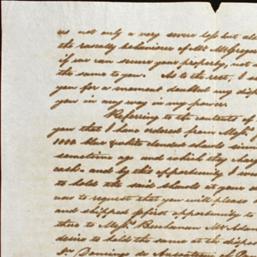 us not only a very severe loss but als
the rascally behaviour of Mr McGrego
if we can secure your property, not a
the same to you. As to the rest, I s
you for a moment doubted my disp
you in any way in my power.
Referring to the contents of
you that I have ordered from Messrs
1000 blue & white shawls simi
sometime ago and which they charg
cash and by this opportunity I wr
to hold the said shawls at your d
now to request that you will please
and shipped p first opportunity to
thro to Messrs Buchanan McAdam
desire to hold the same at the dispos
Dn Domingo de